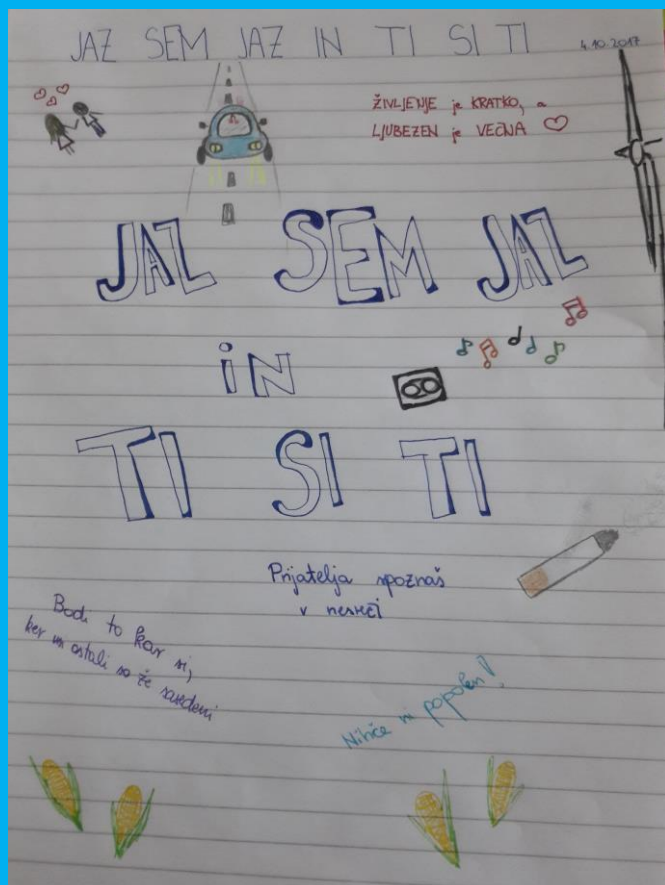 JAZ SEM JAZ IN TI SI TI
4.10.2017
ŽIVLJENJE je KRATKO, a
LJUBEZEN je VEČNA
JAZ SEM JAZ
iN
TI SI TI
Prijatelja spoznaš
v nesreči
Bodi to kar si,
ker vsi ostali so že zasedeni
Nihče ni popolen!